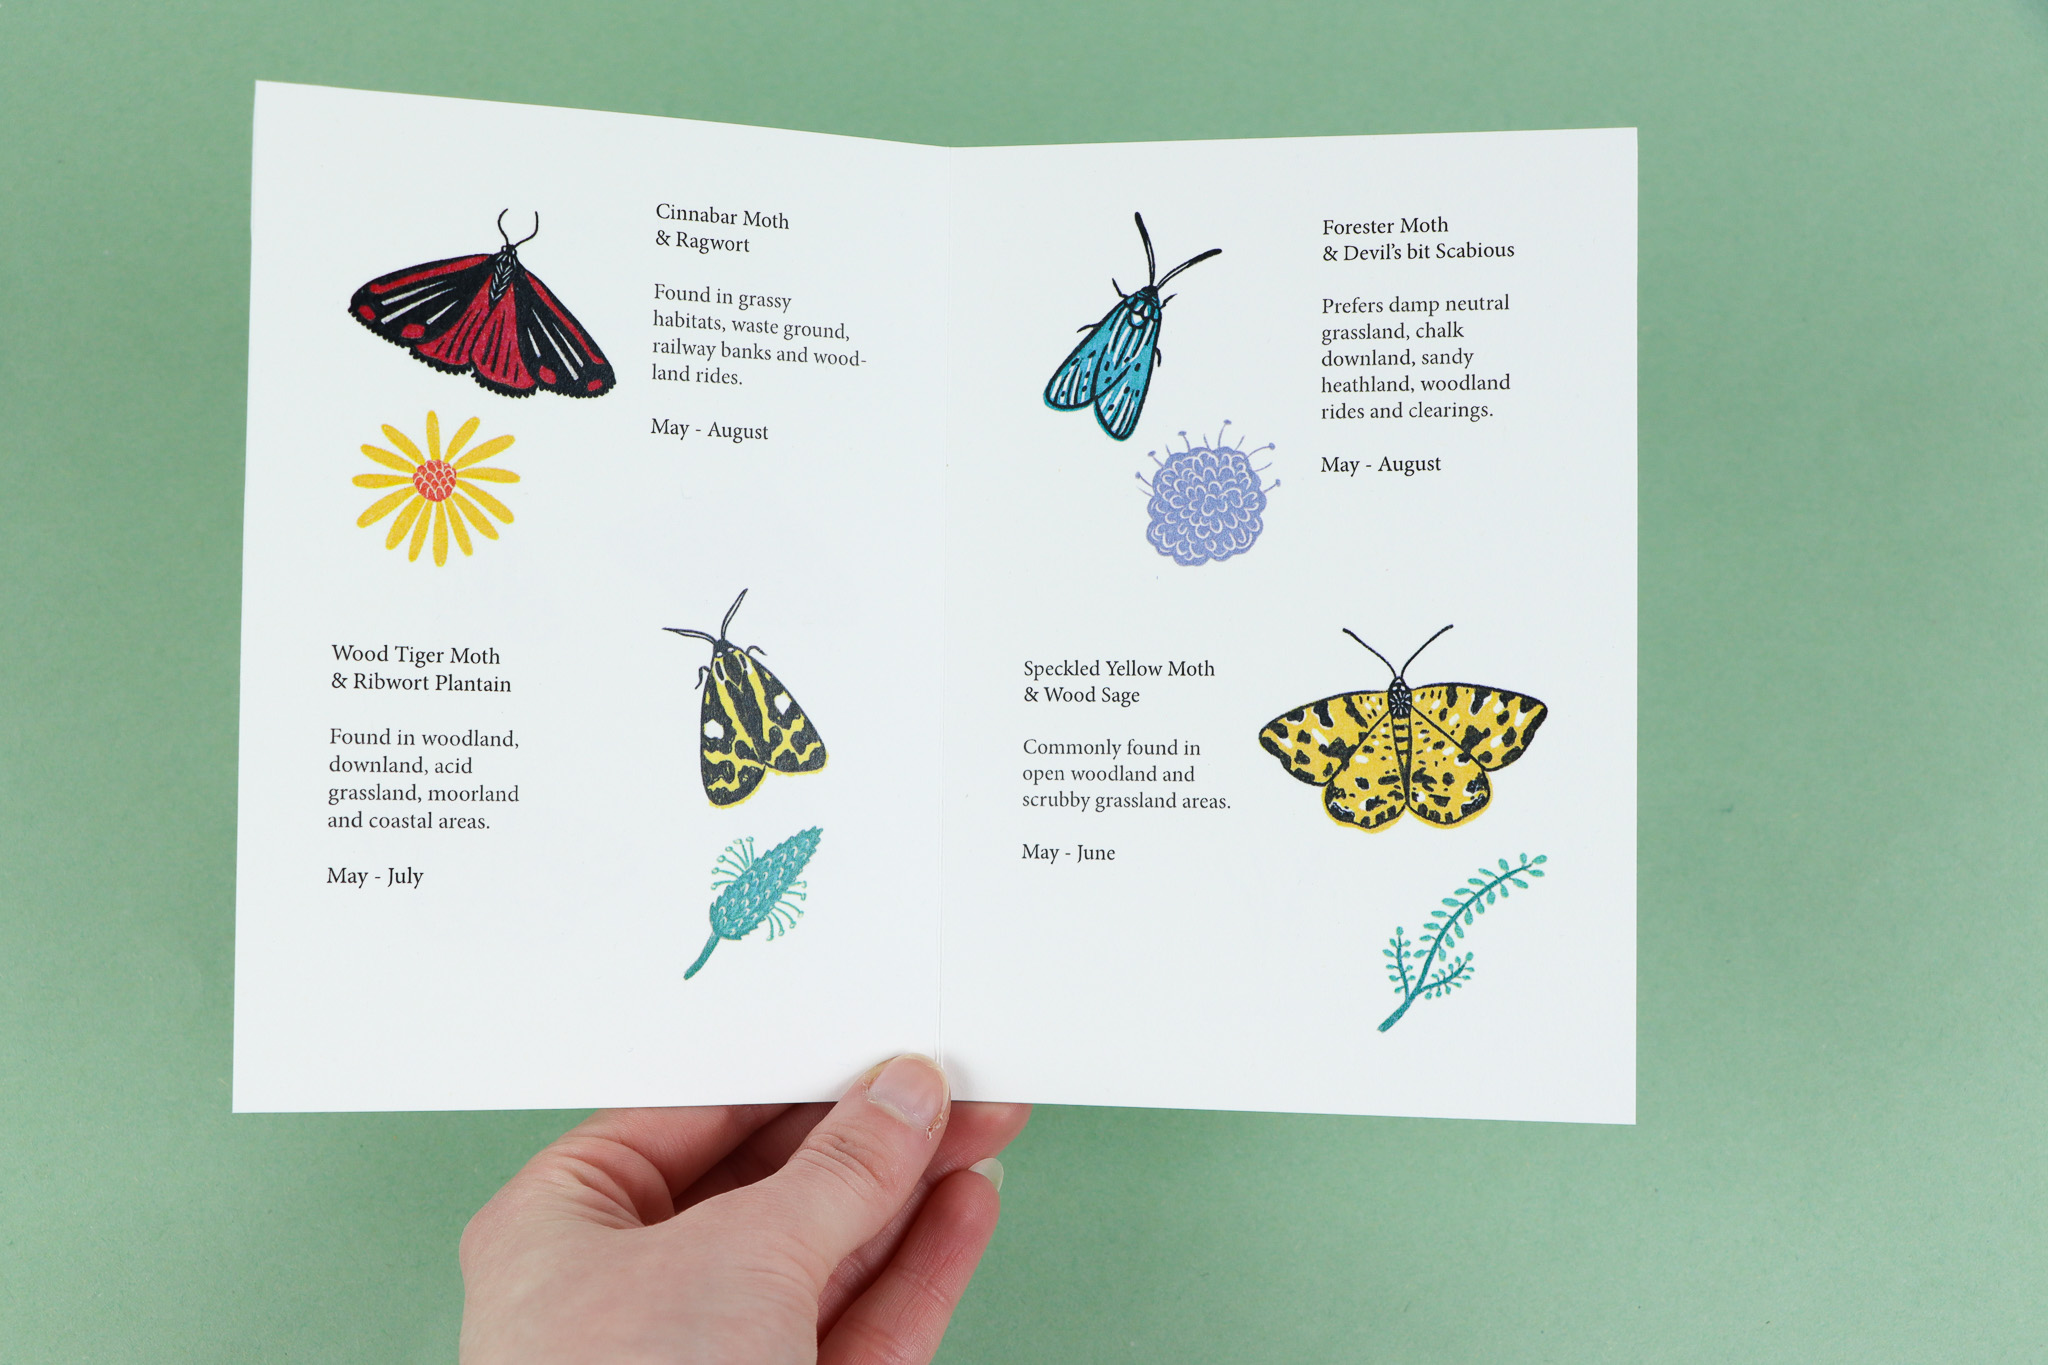 Cinnabar Moth
& Ragwort
Found in grassy
habitats, waste ground,
railway banks and wood-
land rides.
May - August
Wood Tiger Moth
& Ribwort Plantain
Found in woodland,
downland, acid
grassland, moorland
and coastal areas.
May - July
Forester Moth
& Devil’s bit Scabious
Prefers damp neutral
grassland, chalk
downland, sandy
heathland, woodland
rides and clearings.
May - August
Speckled Yellow Moth
& Wood Sage
Commonly found in
open woodland and
scrubby grassland areas.
May - June